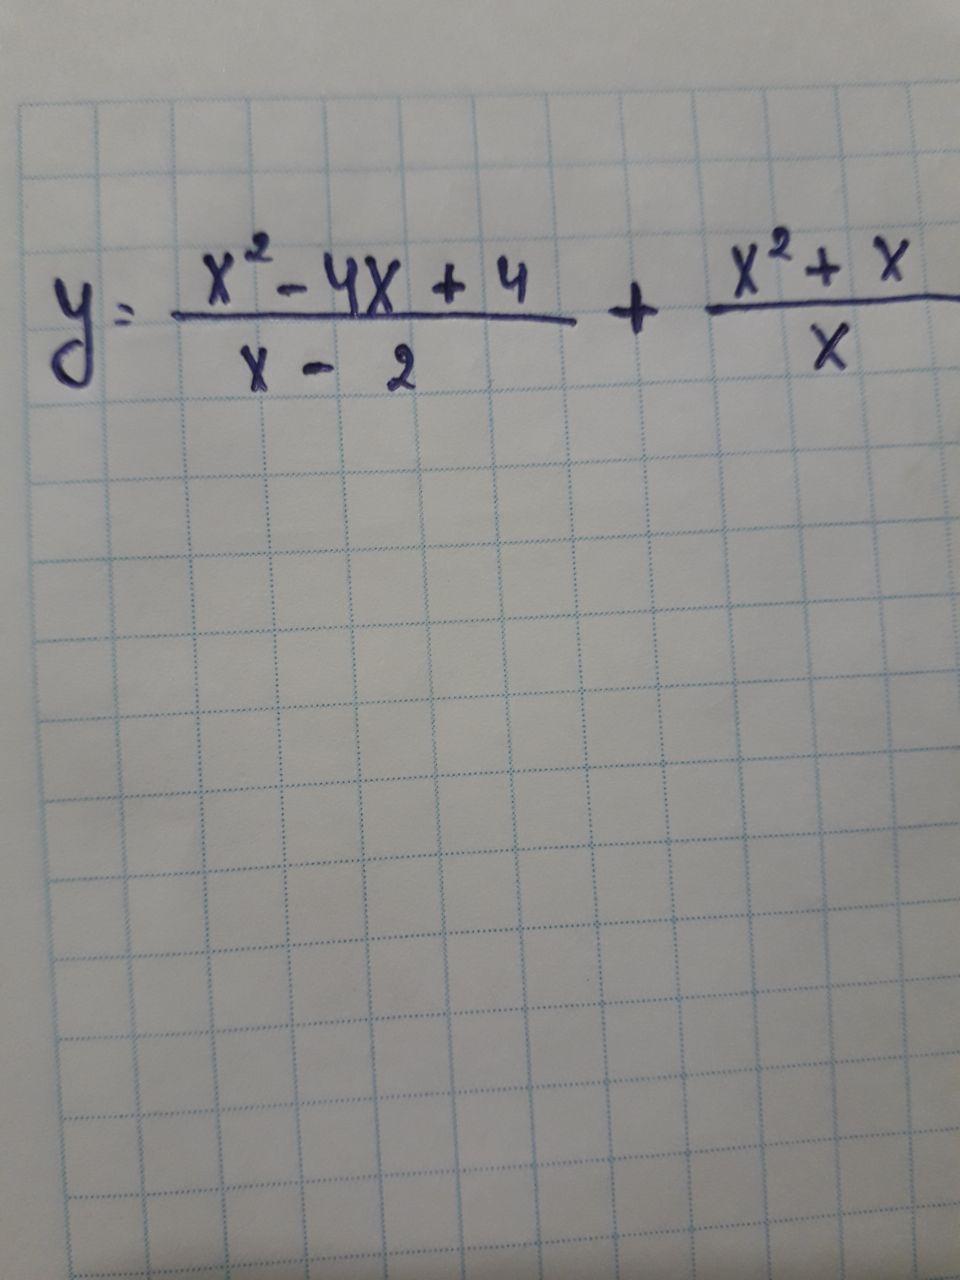 y = \frac{x^2 - 4x + 4}{x - 2} + \frac{x^2 + x}{x}